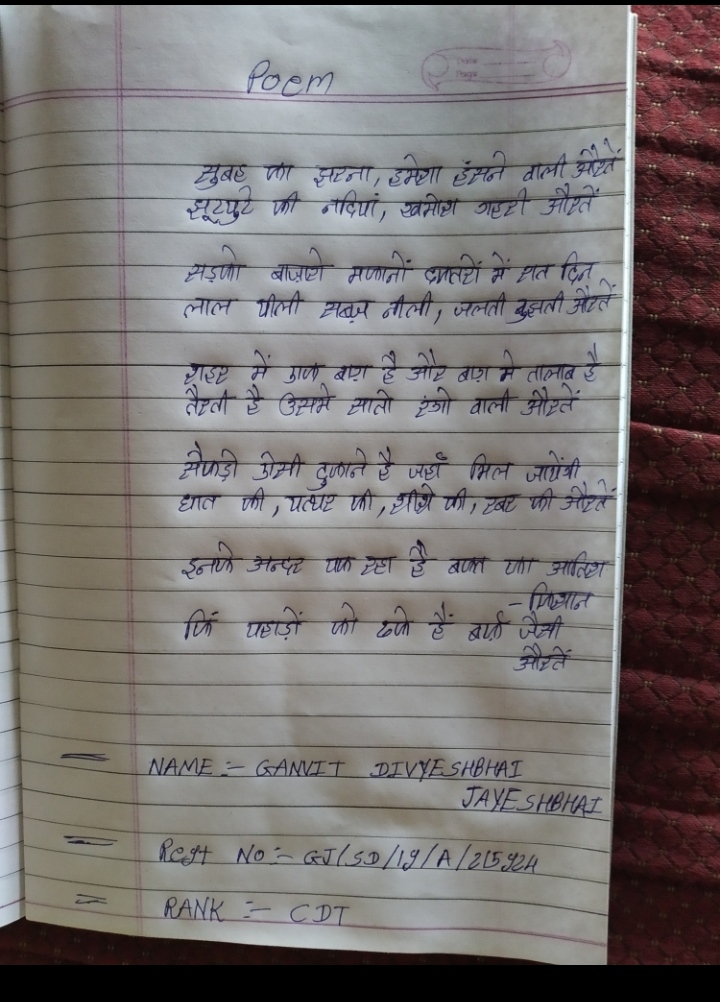 Poem
Date
Page
सुबह का झरना, हमेशा हंसने वाली औरतें
झूटपुटे की नदियां, खमोश गहरी औरतें
सड़को बाज़ारो मकानों दफ्तरों में रात दिन
लाल पीली सब्ज़ नीली, जलती बुझती औरतें
शहर में एक बाग़ है और बाग़ मे तालाब है
तैरती है उसमे सातो रंगो वाली औरतें
सैकड़ो ऐसी दुकाने है जहाँ मिल जायेंगी
धात की, पत्थर की, शीशे की, रबर की औरतें
इनके अन्दर पक रहा है वक्त का आतिश
- फिशान
किं पहाड़ों को ढके हैं बर्फ़ जैसी
औरतें
NAME :- GANVIT DIVYESHBHAI
JAYESHBHAI
Regt No :- GJ/SD/19/A/215924
RANK :- CDT